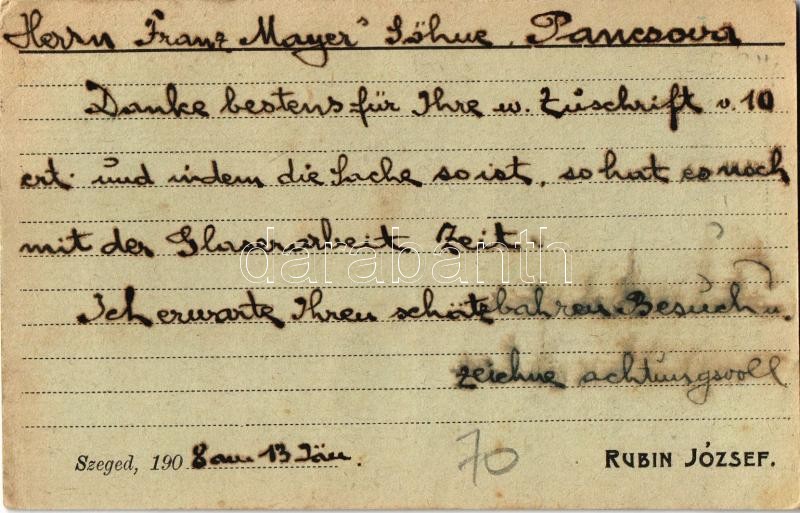 Herrn Franz Mayer's Söhne, Pancsova
Danke bestens für Ihre w. Zuschrift v. 10
crt. und indem die Sache so ist, so hat es noch
mit der Glaserarbeit Zeit.
darabanth
Ich erwarte Ihren schätzbahren Besuch u.
zeichne achtungsvoll
Szeged, 1908 am 13 Jän.
70
RUBIN JÓZSEF.